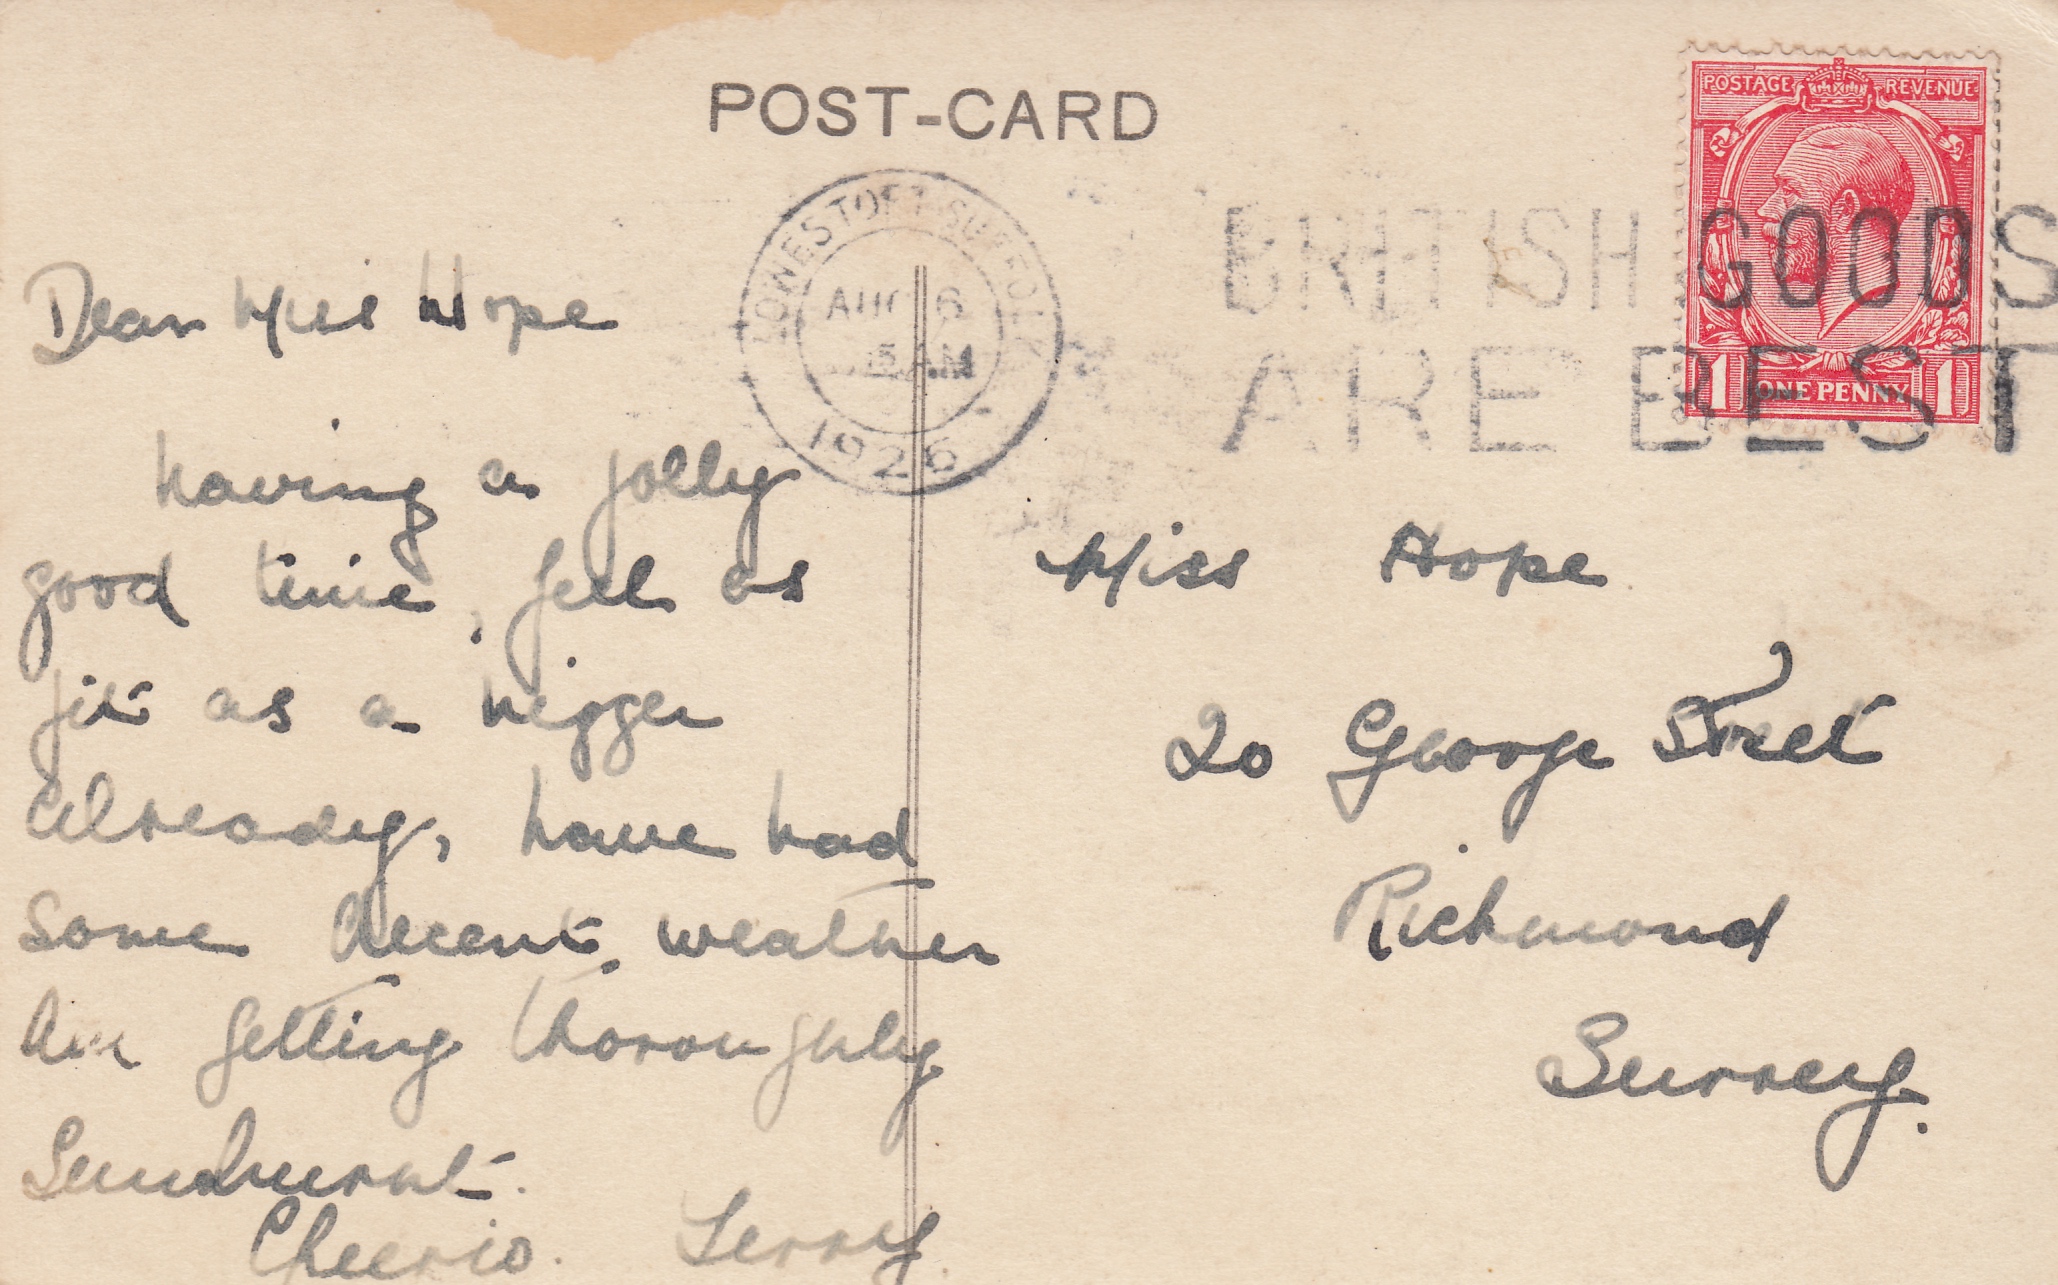 POST-CARD
POSTAGE REVENUE
LOWESTOFT SUFFOLK
AUG 6
15 AM
1926
BRITISH GOODS
ARE BEST
1 ONE PENNY 1
Dear Miss Hope
having a jolly
good time, feel as
fit as a nigger
already, have had
some decent, weather
Am getting thoroughly
Sunburnt.
Cheerio. Terry.
Miss Hope
20 George Street
Richmond
Surrey.